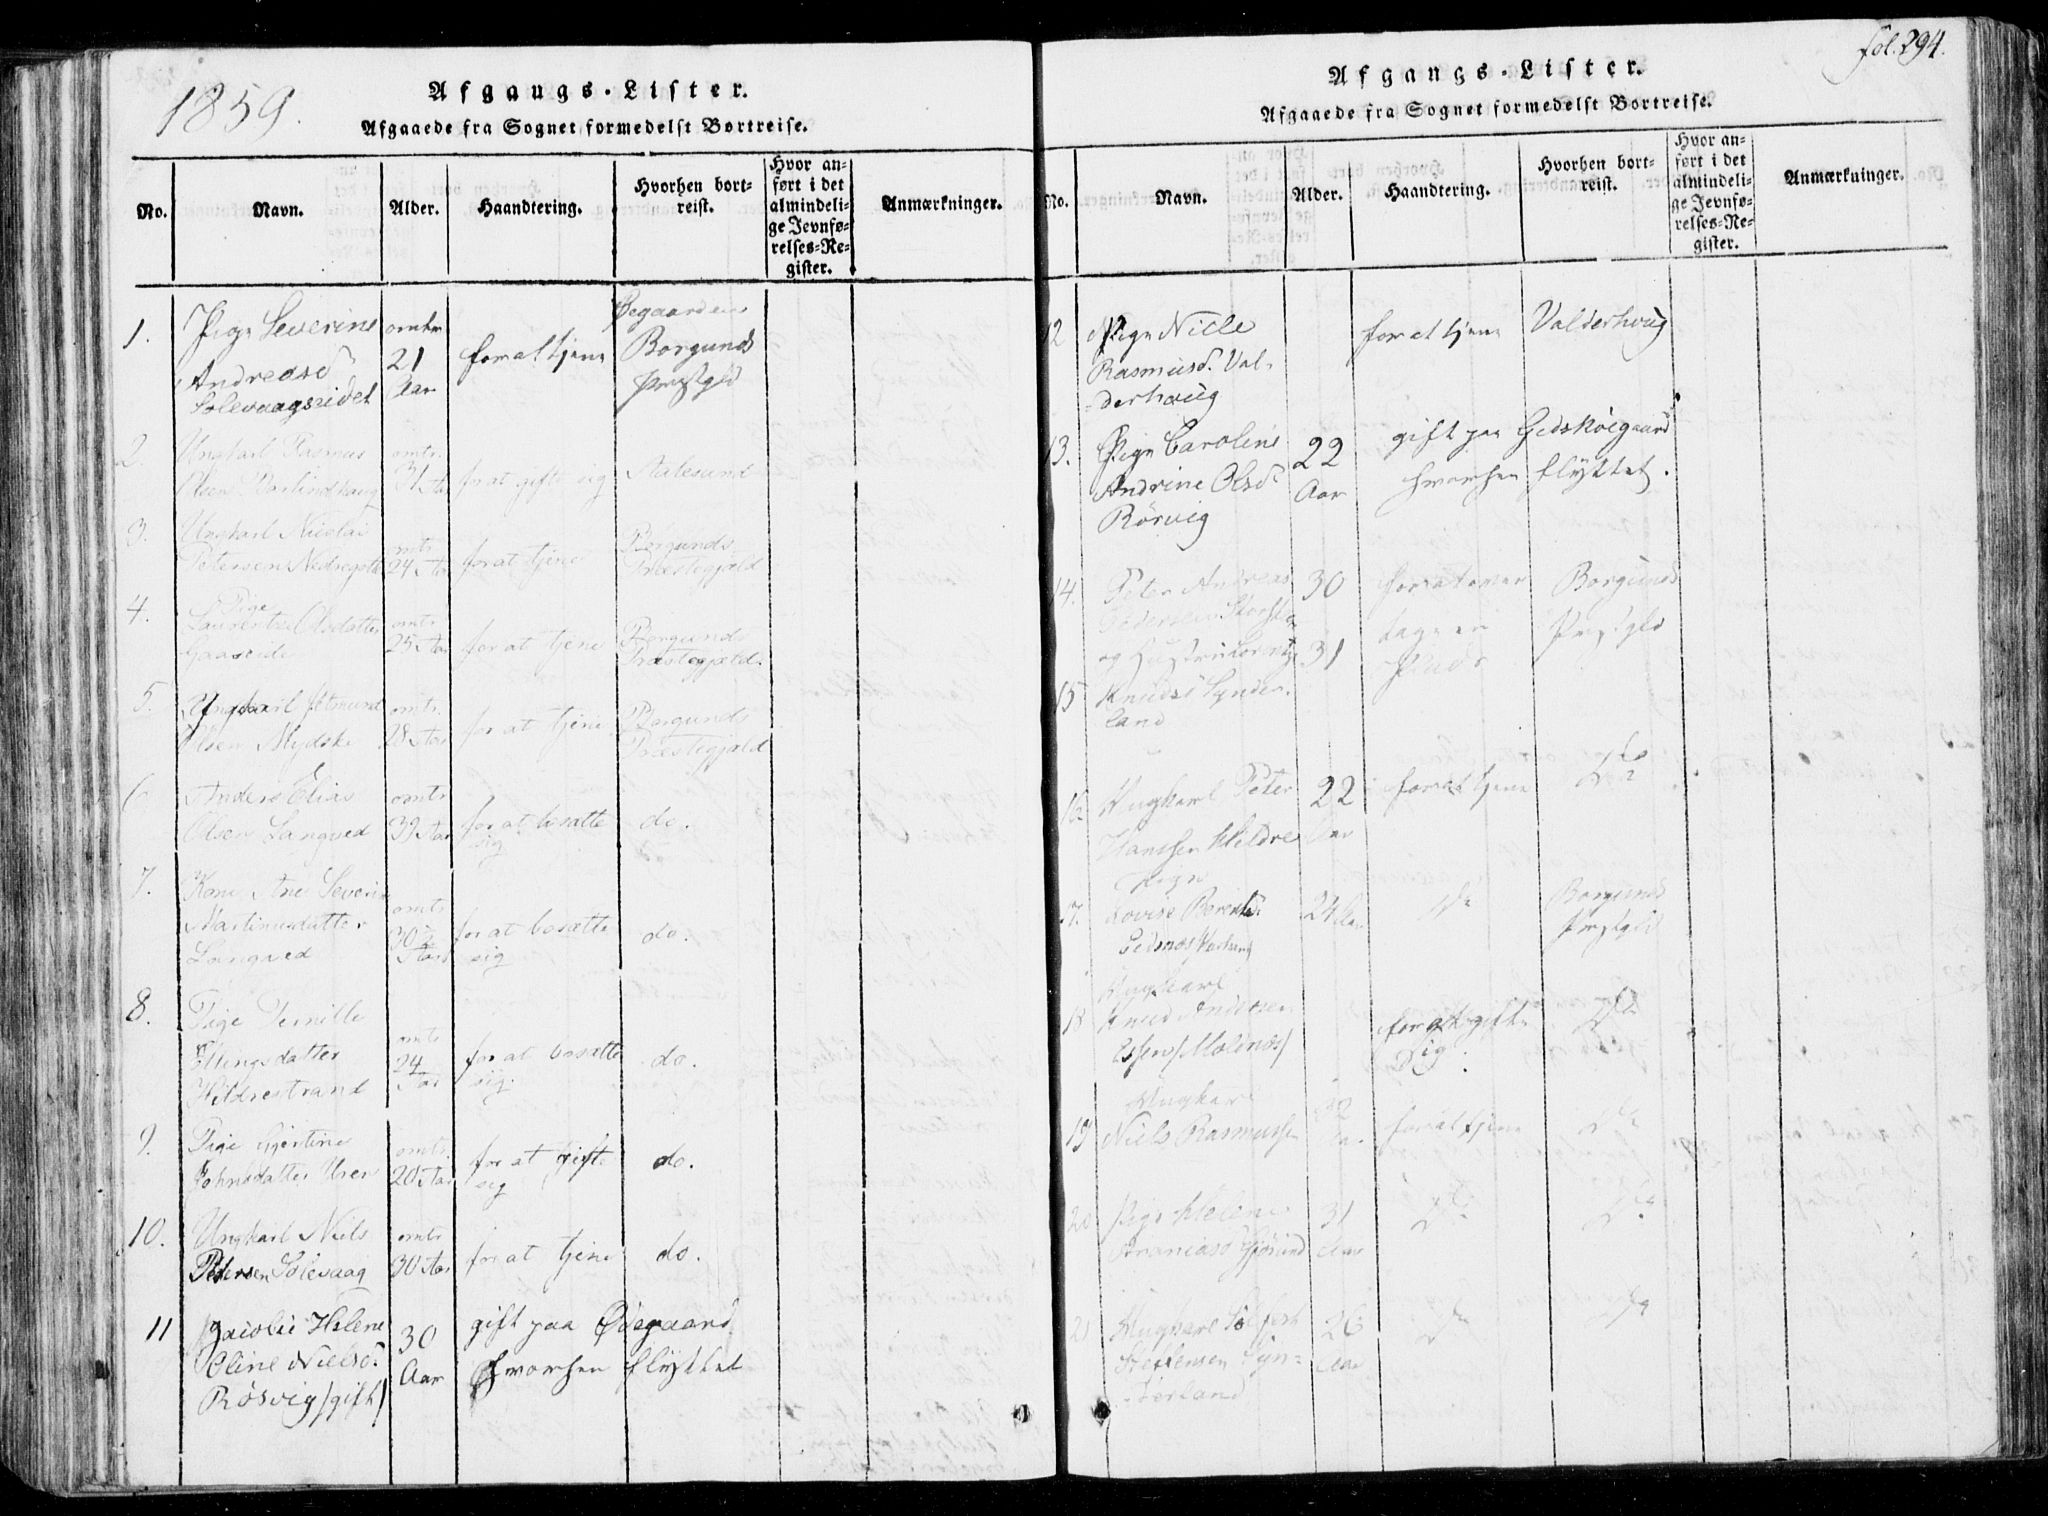 1859.
Afgangs-Lister.
Afgaaede fra Sognet formedelst Bortreise.
No.
Navn.
Alder.
Haandtering.
Hvorhen bort-
reist.
Hvor an-
ført i det
almindeli-
ge Jevnfø-
relses-Re-
gister.
Anmærkninger.
1.
Pige Severine
Andreasd
Solevaagseidet
omtr
21
Aar
for at tjene
Øegaarden
Borgunds
Prstgld
2.
Ungkarl Rasmus
Olsen
omtr.
31 Aar
for at gifte sig
Aalesund
3.
Ungkarl Nicolai
Petersen
omtr
24 Aar
for at tjene
Borgunds
Præstegjæld
4.
Pige
Olsdatter
Gaaseide
omtr
25 Aar
for at tjene
Borgunds
Præstegjæld.
5.
Ungkarl
Olsen Mydske
omtr.
28 Aar
for at tjene
Borgunds
Præstegjæld
6
Anders Elias
Olsen Langved
omtr
39 Aar
for at bosætte
sig
do.
7.
Kone Ane Severine
Martinusdatter
Langved
omtr
30½
Aar
for at bosætte
sig
do.
8.
Pige Pernille
Ellingsdatter
Hildrestrand
omtr
24
Aar
for at bosætte
sig.
do.
9.
Pige Gjertine
Johnsdatter Urer
omtr.
20 Aar
for at gifte
sig
do.
10.
Ungkarl Niels
Petersen Solevaag
omtr
30 Aar
for at tjene
do.
11
Helene
Oline Nielsd.
Rösvig /gift/
30
Aar
gift paa Ødegaard
hvorhen flyttet
fol. 294.
Afgangs-Lister.
Afgaaede fra Sognet formedelst Bortreise.
No.
Navn.
Alder.
Haandtering.
Hvorhen bort-
reist.
Hvor an-
ført i det
almindeli-
ge Jevnfø-
relses-Re-
gister.
Anmærkninger.
12
Pige Nille
Rasmusd. Val-
derhoug
for at tjene
Valderhoug
13.
Pige Caroline
Andrine Olsd
Rörvig
22
Aar
gift paa Gedskoegaard
hvorhen flyttet.
14.
Peter Andreas
Pedersen
og Hustru
30
31
for at over
tage en
Plads
Borgunds
Prstgld
15
Knudsd Synder-
land
16.
Ungkarl Peter
Hanssen Hildre
22
Aar
for at tjene
Do
17.
Pige
Lovise
24 Aar
Do
Borgunds
Prstgld
18
Ungkarl
Knud Andersen
for at gifte
Sig.
Do
19
Ungkarl
Niels Rasmussen
32
Aar
for at tjene
Do
20
Pige Helene
31
Aar
Do
Do
21
Ungkarl
Steffensen Syn-
derland
26
Aar
Do
Do